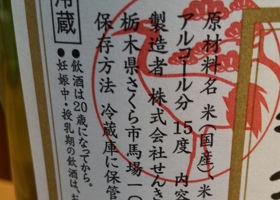 原材料名 米(国産)、米
アルコール分 15度 内容
製造者 株式会社せんき
栃木県さくら市馬場一
保存方法 冷蔵庫に保管
冷蔵
●飲酒は20歳になってから。
●妊娠中・授乳期の飲酒は、お